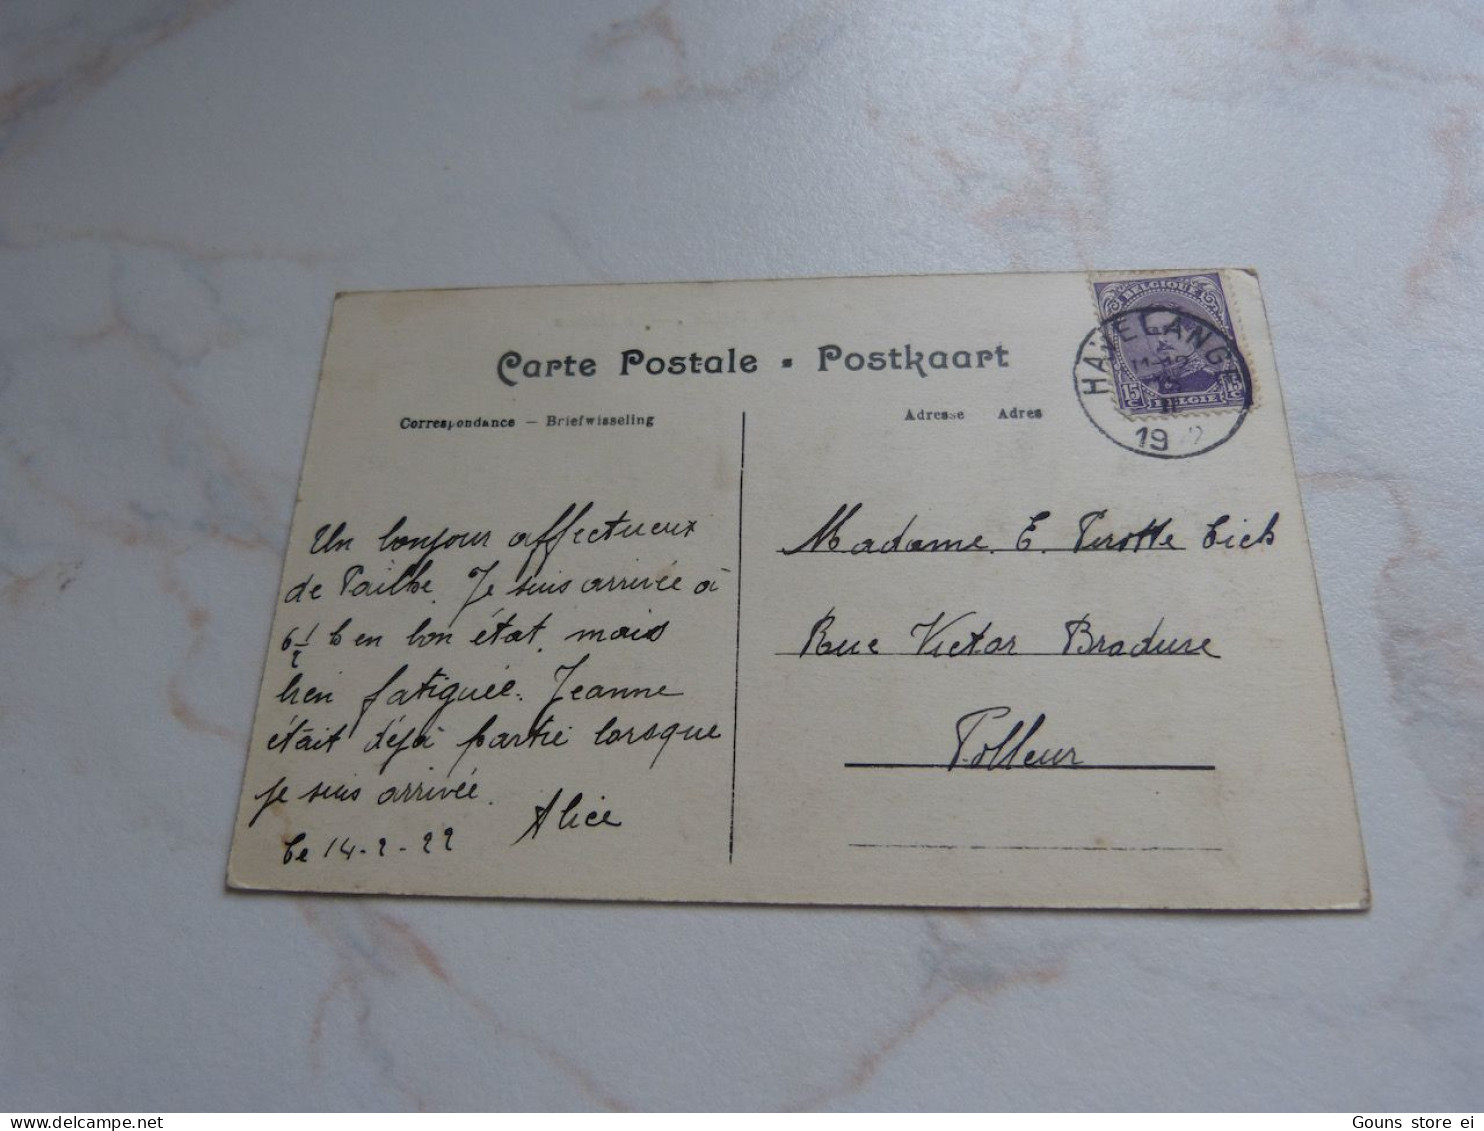 Carte Postale - Postkaart
Correspondance — Briefwisseling
Adresse Adres
BELGIQUE
15 C BELGIE 15 C
HAVELANGE
11-12
19 22
Un bonjour affectueux
de Pailhe. Je suis arrivée à
6 1/2 h en bon état, mais
bien fatiguée. Jeanne
était déjà partie lorsque
je suis arrivée.
Alice
Le 14-2-22
Madame E. Pirotte
Rue Victor Brodure
Polleur
Gouns store ei